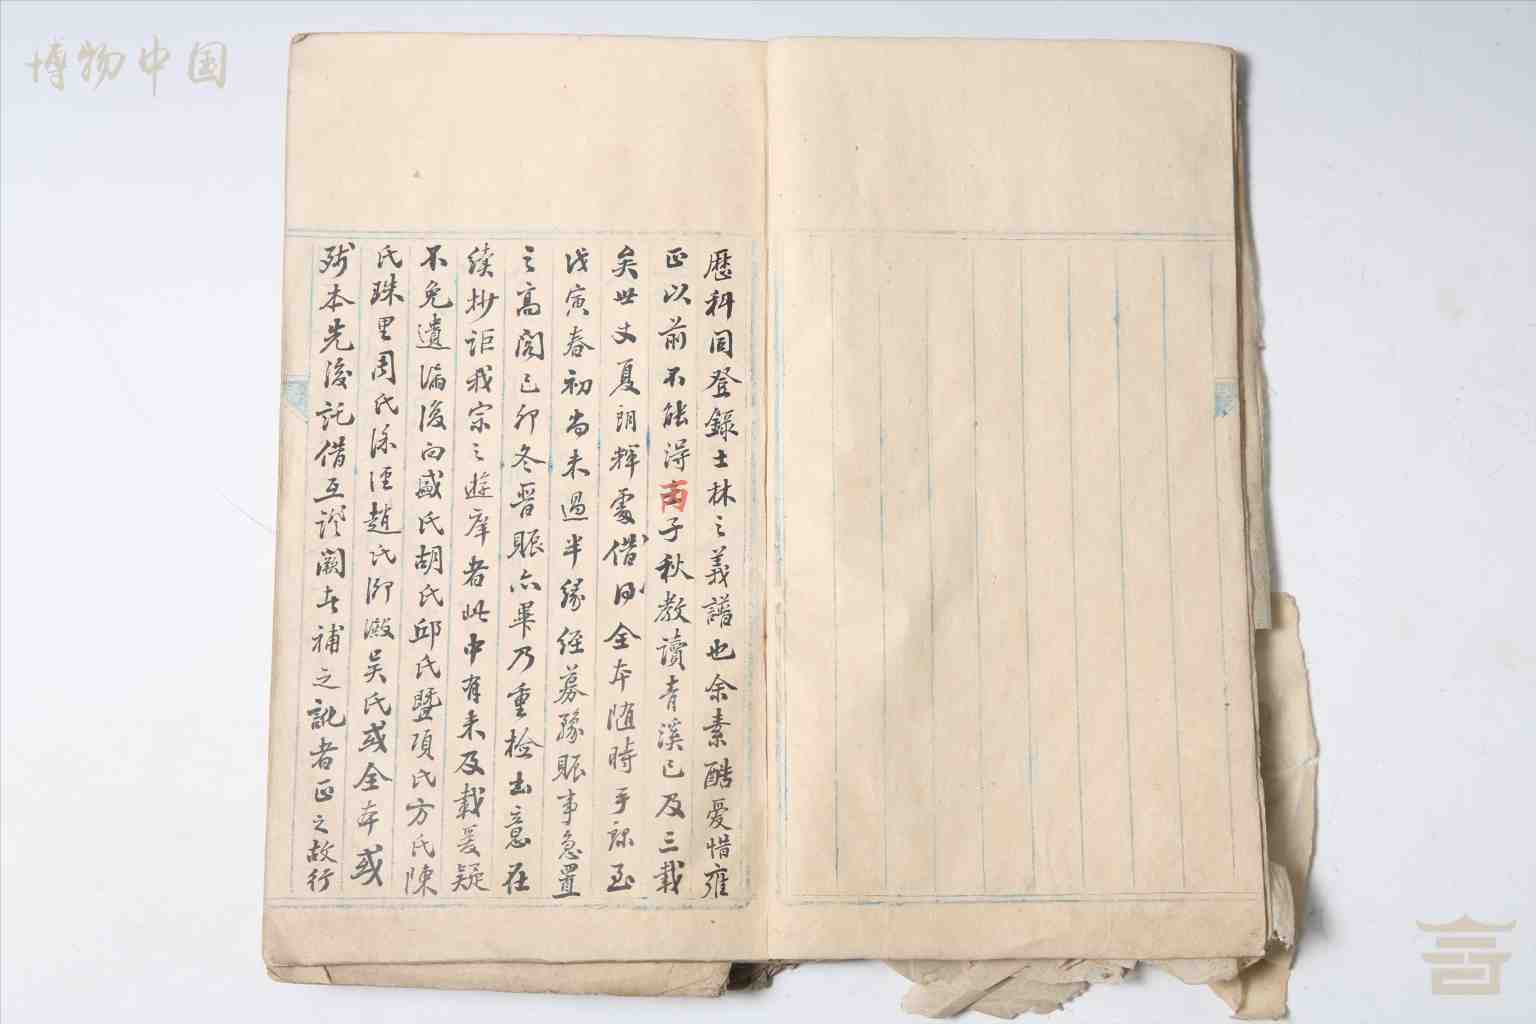 博物中国
歷科同登錄士林之義譜也余素酷愛惜雍
正以前不能得丙子秋教讀青溪已及三載
矣世丈夏朗輝處借 全本随時手 至
戊寅春初尚未過半緣經募 賑事急置
之高閣己卯冬晋賑亦畢乃重檢出意在
續抄詎我宗之遊庠者此中有未及載爰疑
不免遺漏後向盛氏胡氏邱氏暨項氏方氏陳
氏珠里周氏 涇趙氏 吴氏或全本或
殘本先後託借互證闕者補之訛者正之故行